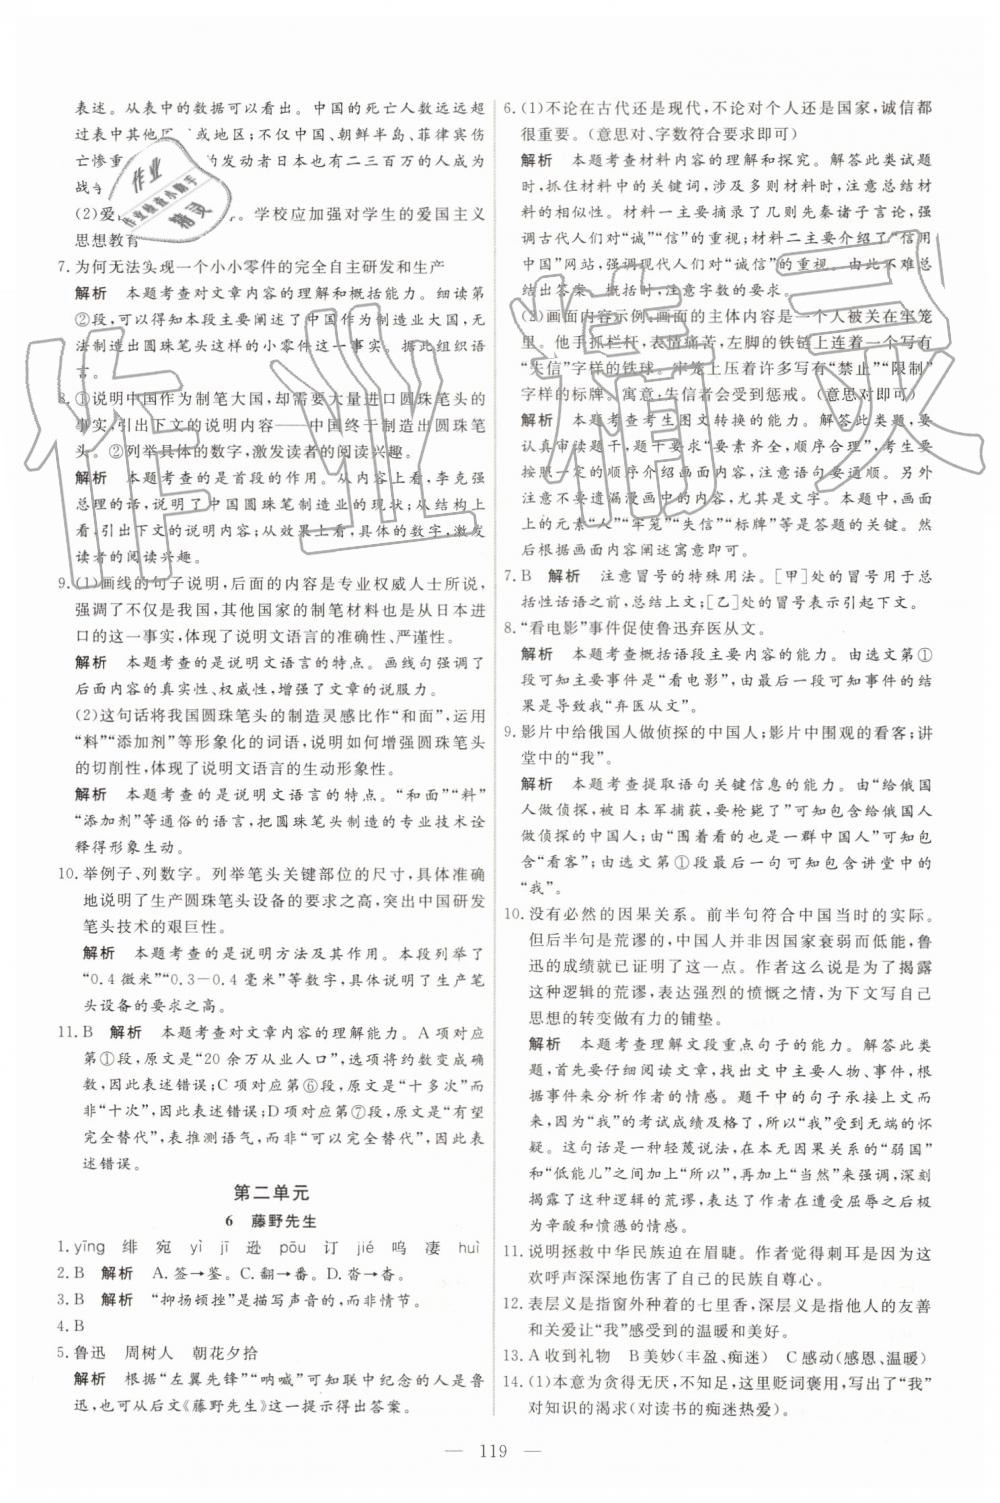 表述。从表中的数据可以看出。中国的死亡人数远远超
过表中其他 或地区;不仅中国、朝鲜半岛、菲律宾伤
亡惨重 的发动者日本也有二三百万的人成为
战
(2)爱 。学校应加强对学生的爱国主义
思想教育
7. 为何无法实现一个小小零件的完全自主研发和生产
解析 本题考查对文章内容的理解和概括能力。细读第
②段,可以得知本段主要阐述了中国作为制造业大国,无
法制造出圆珠笔头这样的小零件这一事实。据此组织语
言。
8. ①说明中国作为制笔大国,却需要大量进口圆珠笔头的
事实,引出下文的说明内容——中国终于制造出圆珠笔
头。②列举具体的数字,激发读者的阅读兴趣。
解析 本题考查的是首段的作用。从内容上看,李克强
总理的话,说明了中国圆珠笔制造业的现状;从结构上
看,引出下文的说明内容;从效果上看,具体的数字,激发
读者的阅读兴趣。
9. (1)画线的句子说明,后面的内容是专业权威人士所说,
强调了不仅是我国,其他国家的制笔材料也是从日本进
口的这一事实,体现了说明文语言的准确性、严谨性。
解析 本题考查的是说明文语言的特点。画线句强调了
后面内容的真实性、权威性,增强了文章的说服力。
(2)这句话将我国圆珠笔头的制造灵感比作“和面”,运用
“料”“添加剂”等形象化的词语,说明如何增强圆珠笔头
的切削性,体现了说明文语言的生动形象性。
解析 本题考查的是说明文语言的特点。“和面”“料”
“添加剂”等通俗的语言,把圆珠笔头制造的专业技术诠
释得形象生动。
10. 举例子、列数字。列举笔头关键部位的尺寸,具体准确
地说明了生产圆珠笔头设备的要求之高,突出中国研发
笔头技术的艰巨性。
解析 本题考查的是说明方法及其作用。本段列举了
“0.4微米”“0.3－0.4毫米”等数字,具体说明了生产笔
头设备的要求之高。
11. B 解析 本题考查对文章内容的理解能力。A项对应
第①段,原文是“20余万从业人口”,选项将约数变成确
数,因此表述错误;C项对应第⑥段,原文是“十多次”而
非“十次”,因此表述错误;D项对应第⑦段,原文是“有望
完全替代”,表推测语气,而非“可以完全替代”,因此表
述错误。
第二单元
6 藤野先生
1. yīng 绯 宛 yì jī 逊 pōu 订 jié 呜 凄 huì
2. B 解析 A. 签→鉴。C. 翻→番。D. 沓→杳。
3. B 解析 “抑扬顿挫”是描写声音的,而非情节。
4. B
5. 鲁迅 周树人 朝花夕拾
解析 根据“左翼先锋”“呐喊”可知联中纪念的人是鲁
迅,也可从后文《藤野先生》这一提示得出答案。
6. (1)不论在古代还是现代,不论对个人还是国家,诚信都
很重要。(意思对、字数符合要求即可)
解析 本题考查材料内容的理解和探究。解答此类试题
时,抓住材料中的关键词,涉及多则材料时,注意总结材
料的相似性。材料一主要摘录了几则先秦诸子言论,强
调古代人们对“诚”“信”的重视;材料二主要展示了“信用
中国”网站,强调现代人们对“诚信”的重视。由此不难总
结出答案。概括时,注意字数的要求。
(2)画面内容示例:画面的主体内容是一个人被关在牢笼
里。他手抓栏杆,表情痛苦,左脚的铁链上连着一个写有
“失信”字样的铁球。牢笼上压着许多写有“禁止”“限制”
字样的标牌。寓意:失信者会受到惩戒。(意思对即可)
解析 本题考查考生图文转换的能力。解答此类题,要
认真审读题干,题干要求“要素齐全,顺序合理”,考生要
按照一定的顺序介绍画面内容,注意语句要通顺。另外
注意不要遗漏漫画中的内容,尤其是文字。本题中,画面
上的元素“人”“牢笼”“失信”“标牌”等是答题的关键。然
后根据画面内容阐述寓意即可。
7. B 解析 注意冒号的特殊用法。[甲]处的冒号用于总
括性话语之前,总结上文;[乙]处的冒号表示引起下文。
8. “看电影”事件促使鲁迅弃医从文。
解析 本题考查概括语段主要内容的能力。由选文第①
段可知主要事件是“看电影”,由最后一段可知事件的结
果是导致我“弃医从文”。
9. 影片中给俄国人做侦探的中国人;影片中围观的看客;讲
堂中的“我”。
解析 本题考查提取语句关键信息的能力。由“给俄国
人做侦探,被日本军捕获,要枪毙了”可知包含给俄国人
做侦探的中国人;由“围着看的也是一群中国人”可知包
含“看客”;由选文第①段最后一句可知包含讲堂中的
“我”。
10. 没有必然的因果关系。前半句符合中国当时的实际。
但后半句是荒谬的,中国人并非因国家衰弱而低能,鲁
迅的成绩就已证明了这一点。作者这么说是为了揭露
这种逻辑的荒谬,表达强烈的愤慨之情,为下文写自己
思想的转变做有力的铺垫。
解析 本题考查理解文段重点句子的能力。解答此类
题,首先要仔细阅读文章,找出文中主要人物、事件,根
据事件来分析作者的情感。题干中的句子承接上文,
是因为“我”的考试成绩及格了,所以“我”受到无端的怀
疑。这句话是一种轻蔑说法,在本无因果关系的“弱国”
和“低能儿”之间加上“所以”,再加上“当然”来强调,深
刻揭示了这种逻辑的荒谬,表达了作者在遭受屈辱之后极
为辛酸和愤懑的情感。
11. 说明拯救中华民族迫在眉睫。作者觉得刺耳是因为这
欢呼声深深地伤害了自己的民族自尊心。
12. 表层义是指窗外种着的七里香,深层义是指他人的友善
和关爱让“我”感受到的温暖和美好。
13. A 收到礼物 B 美妙(丰盈、痴迷) C 感动(感恩、温暖)
14. (1)本意为贪得无厌,不知足,这里贬词褒用,写出了“我”
对知识的渴求(对读书的痴迷热爱)。
— 119 —
作业
作业检查小助手
精灵
作业精灵